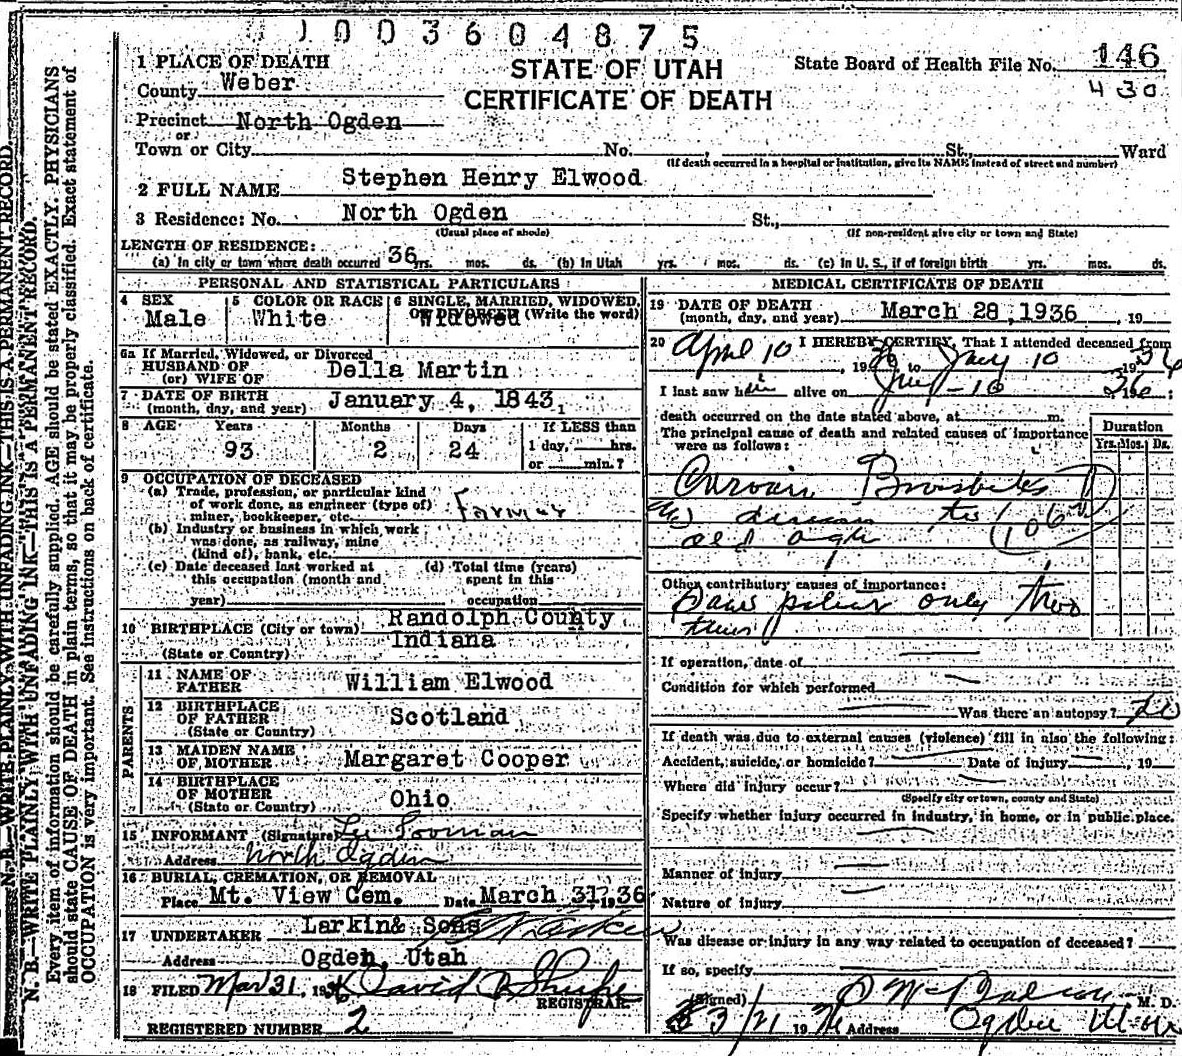 1003604875
1 PLACE OF DEATH
STATE OF UTAH
State Board of Health File No. 146
County Weber
CERTIFICATE OF DEATH
430
Precinct North Ogden
or
Town or City No. , St., Ward
(If death occurred in a hospital or institution, give its NAME instead of street and number)
2 FULL NAME Stephen Henry Elwood
3 Residence: No. North Ogden St.,
(Usual place of abode) (If non-resident give city or town and State)
LENGTH OF RESIDENCE:
(a) In city or town where death occurred 36 yrs. mos. ds. (b) In Utah yrs. mos. ds. (c) In U. S., if of foreign birth yrs. mos. ds.
PERSONAL AND STATISTICAL PARTICULARS
4 SEX Male
5 COLOR OR RACE White
6 SINGLE, MARRIED, WIDOWED, OR DIVORCED (Write the word) Widowed
6a If Married, Widowed, or Divorced
HUSBAND OF
(or) WIFE OF Della Martin
7 DATE OF BIRTH
(month, day, and year) January 4, 1843
8 AGE Years Months Days If LESS than
93 2 24 1 day, hrs.
or min.?
9 OCCUPATION OF DECEASED
(a) Trade, profession, or particular kind
of work done, as engineer (type of)
miner, bookkeeper, etc. Farmer
(b) Industry or business in which work
was done, as railway, mine
(kind of), bank, etc.
(c) Date deceased last worked at
this occupation (month and
year)
(d) Total time (years)
spent in this
occupation
10 BIRTHPLACE (City or town) Randolph County
(State or Country) Indiana
PARENTS
11 NAME OF
FATHER William Elwood
12 BIRTHPLACE
OF FATHER Scotland
(State or Country)
13 MAIDEN NAME
OF MOTHER Margaret Cooper
14 BIRTHPLACE
OF MOTHER Ohio
(State or Country)
15 INFORMANT (Signature)
Address North Ogden
16 BURIAL, CREMATION, OR REMOVAL
Place Mt. View Cem. Date March 31, 1936
17 UNDERTAKER Larkin & Sons
Address Ogden, Utah
18 FILED Mar 31, 1936 David
REGISTRAR.
REGISTERED NUMBER 2
MEDICAL CERTIFICATE OF DEATH
19 DATE OF DEATH
(month, day, and year) March 28, 1936, 19
20 I HEREBY CERTIFY, That I attended deceased from
April 10, 19 to 10 1936
I last saw him alive on 10 1936;
death occurred on the date stated above, at m.
The principal cause of death and related causes of importance
were as follows:
Duration
Yrs. Mos. Ds.
old
Other contributory causes of importance:
only two
If operation, date of
Condition for which performed
Was there an autopsy? no
If death was due to external causes (violence) fill in also the following:
Accident, suicide, or homicide? Date of injury , 19
Where did injury occur?
(Specify city or town, county and State)
Specify whether injury occurred in industry, in home, or in public place.
Manner of injury
Nature of injury
Was disease or injury in any way related to occupation of deceased?
If so, specify
(Signed) M. D.
3/21 1936 Address Ogden
N. B.—WRITE PLAINLY WITH UNFADING INK—THIS IS A PERMANENT RECORD.
N. B.—WRITE PLAINLY WITH UNFADING INK—THIS IS A PERMANENT RECORD.
Every item of information should be carefully supplied. AGE should be stated EXACTLY. PHYSICIANS
should state CAUSE OF DEATH in plain terms, so that it may be properly classified. Exact statement of
OCCUPATION is very important. See instructions on back of certificate.